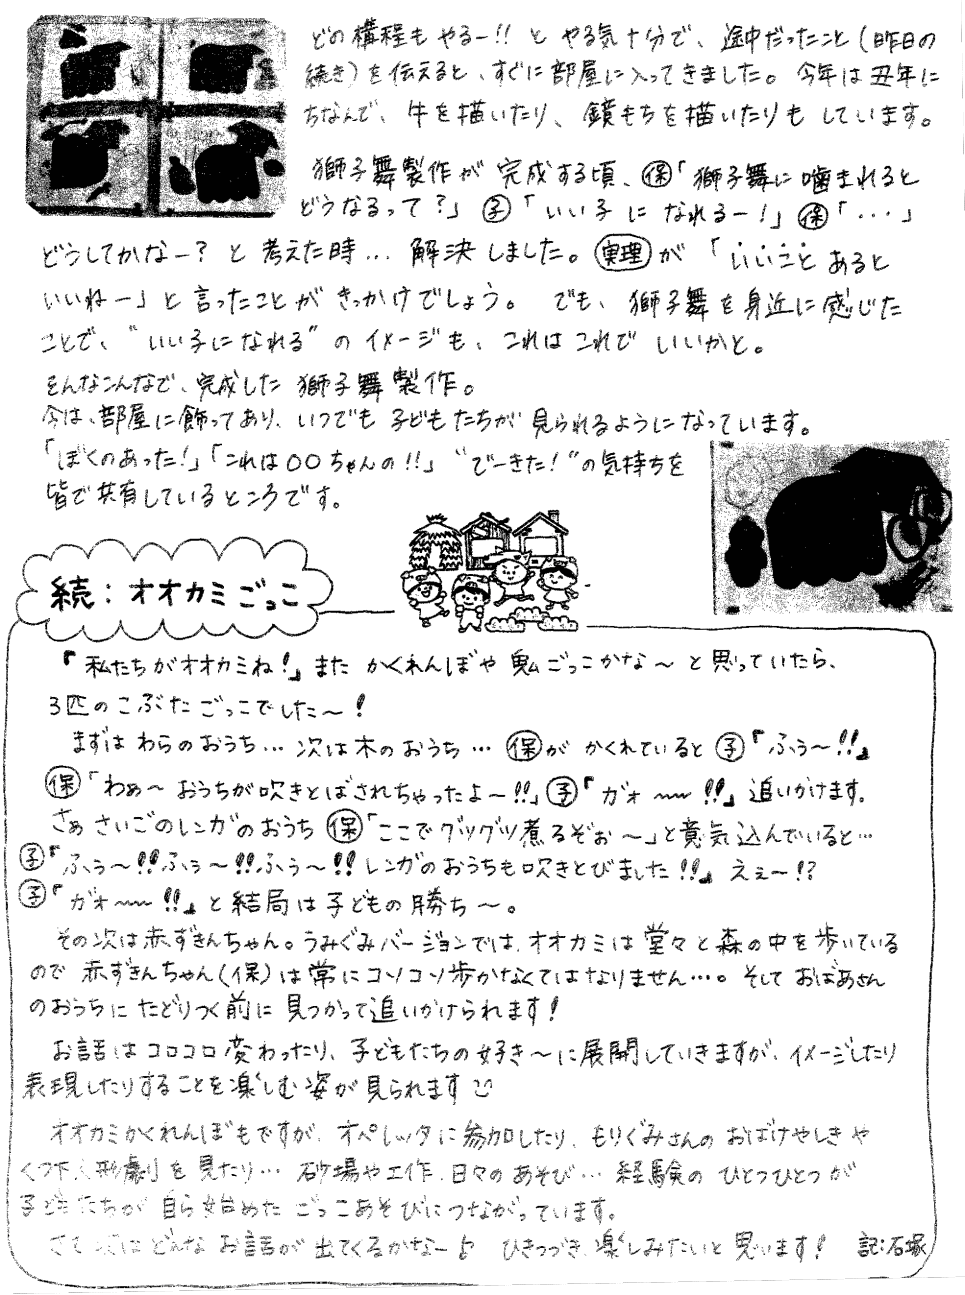 どの構程もやるー!! と やる気十分で、途中だったこと(昨日の
続き)を伝えると、すぐに部屋に入ってきました。今年は丑年に
ちなんで、牛を描いたり、鏡もちを描いたりもしています。
獅子舞製作が完成する頃、㋭「獅子舞に噛まれると
どうなるって?」子「いい子になれるー!」保「・・・」
どうしてかなー? と考えた時… 解決しました。実理が「いいことあると
いいねー」と言ったことがきっかけでしょう。でも、獅子舞を身近に感じた
ことで、"いい子になれる"のイメージも、これはこれでいいかと。
そんなこんなで、完成した獅子舞製作。
今は、部屋に飾ってあり、いつでも子どもたちが見られるようになっています。
「ぼくのあった!」「これは〇〇ちゃんの!!」"でーきた!"の気持ちを
皆で共有しているところです。
続:オオカミごっこ
『私たちがオオカミね!』また かくれんぼや鬼ごっこかな〜と思っていたら、
3匹のこぶたごっこでした〜!
まずは わらのおうち… 次は木のおうち… 保が かくれていると 子『ふぅ〜!!』
保「わぁ〜 おうちが吹きとばされちゃったよ〜!!」子『ガォ〜〜!!』追いかけます。
さぁ さいごのレンガのおうち 保「ここでグツグツ煮るぞぉ〜」と意気込んでいると…
子『ふぅ〜!!ふぅ〜!!ふぅ〜!! レンガのおうちも吹きとびました!!』えぇ〜!?
子『ガォ〜〜!!』と結局は子どもの勝ち〜。
その次は赤ずきんちゃん。うみぐみバージョンでは、オオカミは堂々と森の中を歩いている
ので 赤ずきんちゃん(保)は常にコソコソ歩かなくてはなりません…。そして おばあさん
のおうちに たどりつく前に 見つかって追いかけられます!
お話はコロコロ変わったり、子どもたちの好き〜に展開していきますが、イメージしたり
表現したりすることを楽しむ姿が見られます☺
オオカミかくれんぼもですが、オペレッタに参加したり、もりぐみさんの おばけやしきや
くつ下人形劇を見たり… 砂場や工作、日々のあそび… 経験の ひとつひとつが
子どもたちが 自ら始めた ごっこあそびにつながっています。
さて次はどんな お話が出てくるかなー♪ ひきつづき、楽しみたいと思います! 記:石塚